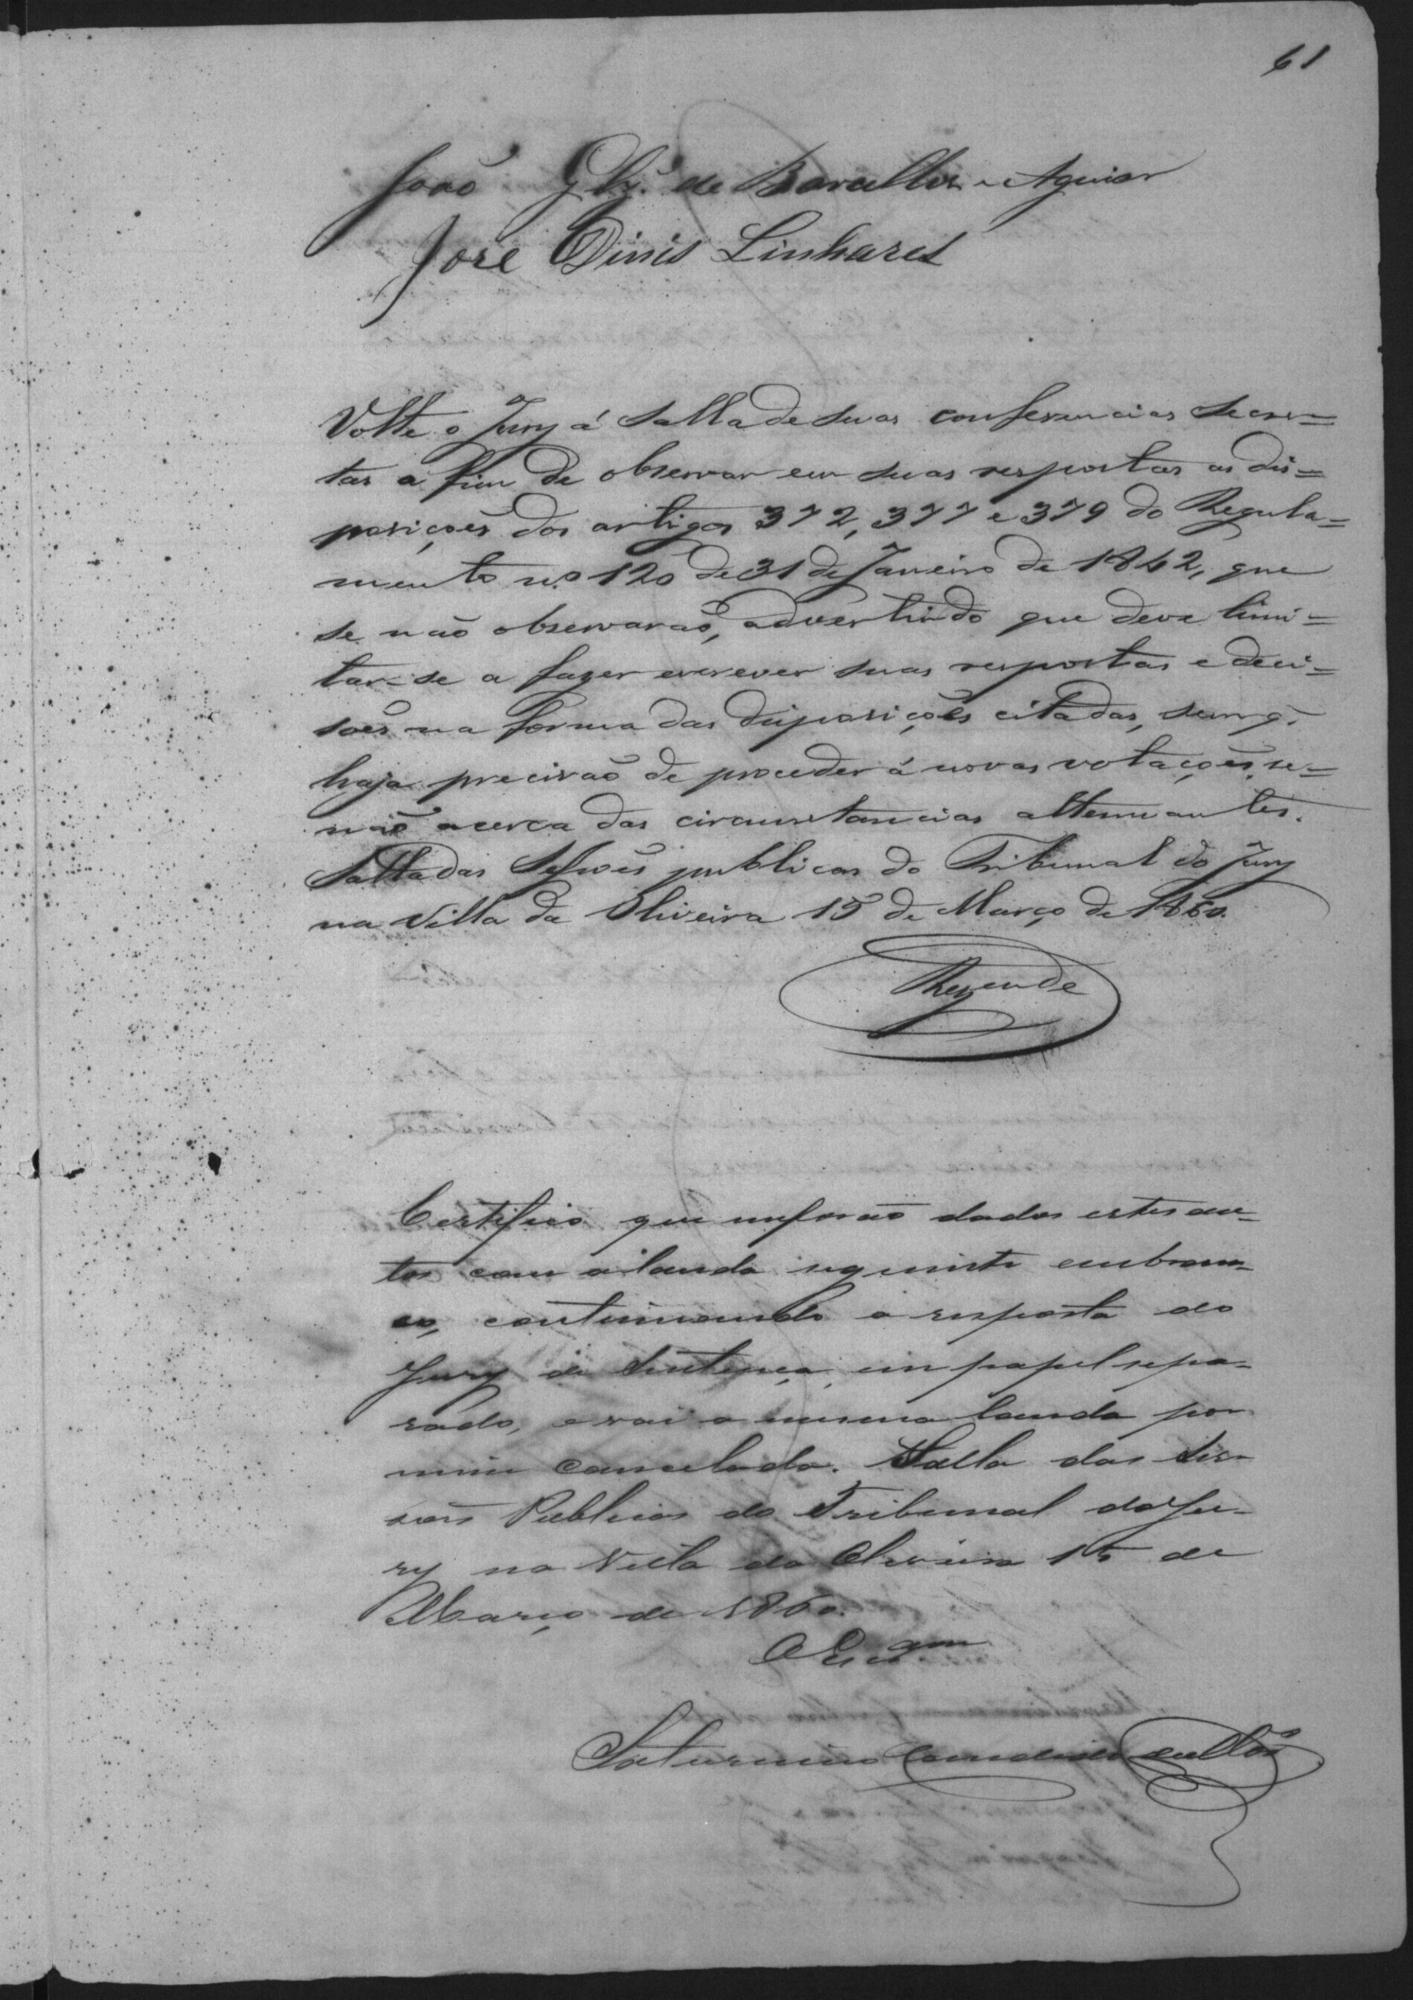 61
João Glz.' de Barcellos e Aguiar
José Dinis Linhares
Volte o Jury á Salla de suas conferencias secre=
tas a fim de observar em suas respostas as dis=
posições dos artigos 372, 377 e 379 do Regula=
mento n.º 120 de 31 de Janeiro de 1842, que
se não observarão, advertindo que deve limi=
tar-se a fazer escrever suas respostas e deci=
sões na forma das disposições citadas, sem q.
haja precisão de proceder á novas votações, se=
não acerca das circunstancias attenuantes.
Salla das Sessões publicas do Tribunal do Jury
na Villa da Oliveira 15 de Março de 1860.
Rezende
Certifico que me forão dados estes au-
tos com a lauda seguinte em bran-
co, continuando a resposta do
Jury de Sentença em papel sepa-
rado, e vai a mesma lauda por
mim cancelada. Salla das Ses-
sões Publicas do Tribunal do Ju-
ry na Villa da Oliveira 15 de
Março de 1860.
O Escam
Saturnino Candido